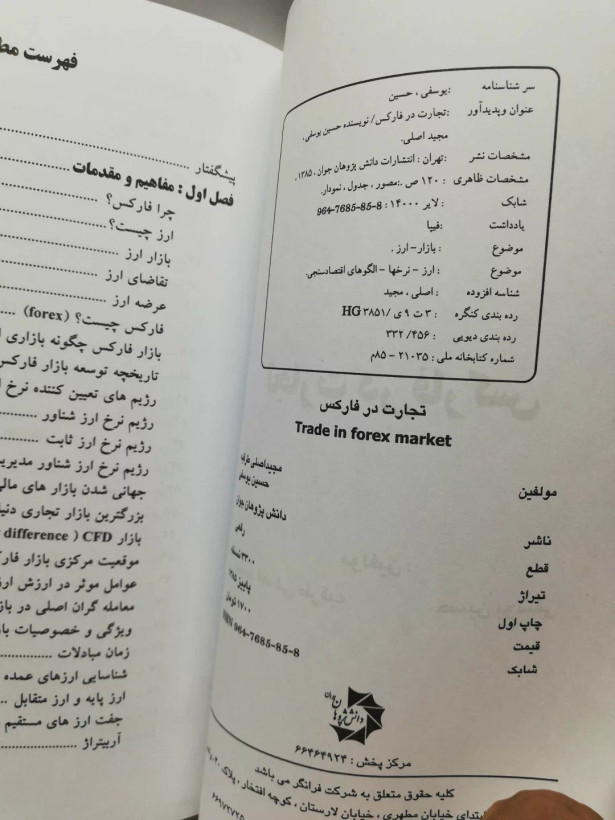 سر شناسنامه :یوسفی ، حسین
عنوان وپدیدآور :تجارت در فارکس/ نویسنده حسین یوسفی ،
مجید اصلی.
مشخصات نشر :تهران : انتشارات دانش پژوهان جوان ، ۱۳۸۵ .
مشخصات ظاهری : ۱۲۰ ص .:مصور ، جدول ، نمودار.
شابک : ۱۴۰۰۰ ریال : 964-7685-85-8
یادداشت :فیپا
موضوع : بازار- ارز .
موضوع : ارز - نرخها - الگوهای اقتصادسنجی.
شناسه افزوده : اصلی ، مجید
رده بندی کنگره : ۳ ت ۹ ی / HG ۳۸۵۱
رده بندی دیویی : ۴۵۶/ ۳۳۲
شماره کتابخانه ملی : ۲۱۰۳۵ - ۸۵م
تجارت در فارکس
Trade in forex market
مولفین مجیداصلی
حسین یوسفی
ناشر دانش پژوهان جوان
قطع رقعی
تیراژ ۳۳۰۰ نسخه
چاپ اول پاییز ۱۳۸۵
قیمت ۱۷۰۰ تومان
شابک ISBN 964-7685-85-8
دانش پژوهان جوان
مرکز پخش : ۶۶۴۶۴۹۲۳
کلیه حقوق متعلق به شرکت فرانگر می باشد
ابتدای خیابان مطهری ، خیابان لارستان ، کوچه افتخار ، پلاک
فهرست
پیشگفتار
فصل اول : مفاهیم و مقدمات
چرا فارکس؟
ارز چیست؟
بازار ارز
تقاضای ارز
عرضه ارز
فارکس چیست؟ (forex)
بازار فارکس چگونه بازاری
تاریخچه توسعه بازار فارکس
رژیم های تعیین کننده نرخ
رژیم نرخ ارز شناور
رژیم نرخ ارز ثابت
رژیم نرخ ارز شناور مدیریت
جهانی شدن بازار های مالی
بزرگترین بازار تجاری دنیا
بازار CFD ( difference
موقعیت مرکزی بازار
عوامل موثر در ارزش ارز
معامله گران اصلی در
ویژگی و خصوصیات
زمان مبادلات
شناسایی ارزهای عمده
ارز پایه و ارز متقابل
جفت ارز های مستقیم
آربیتراژ